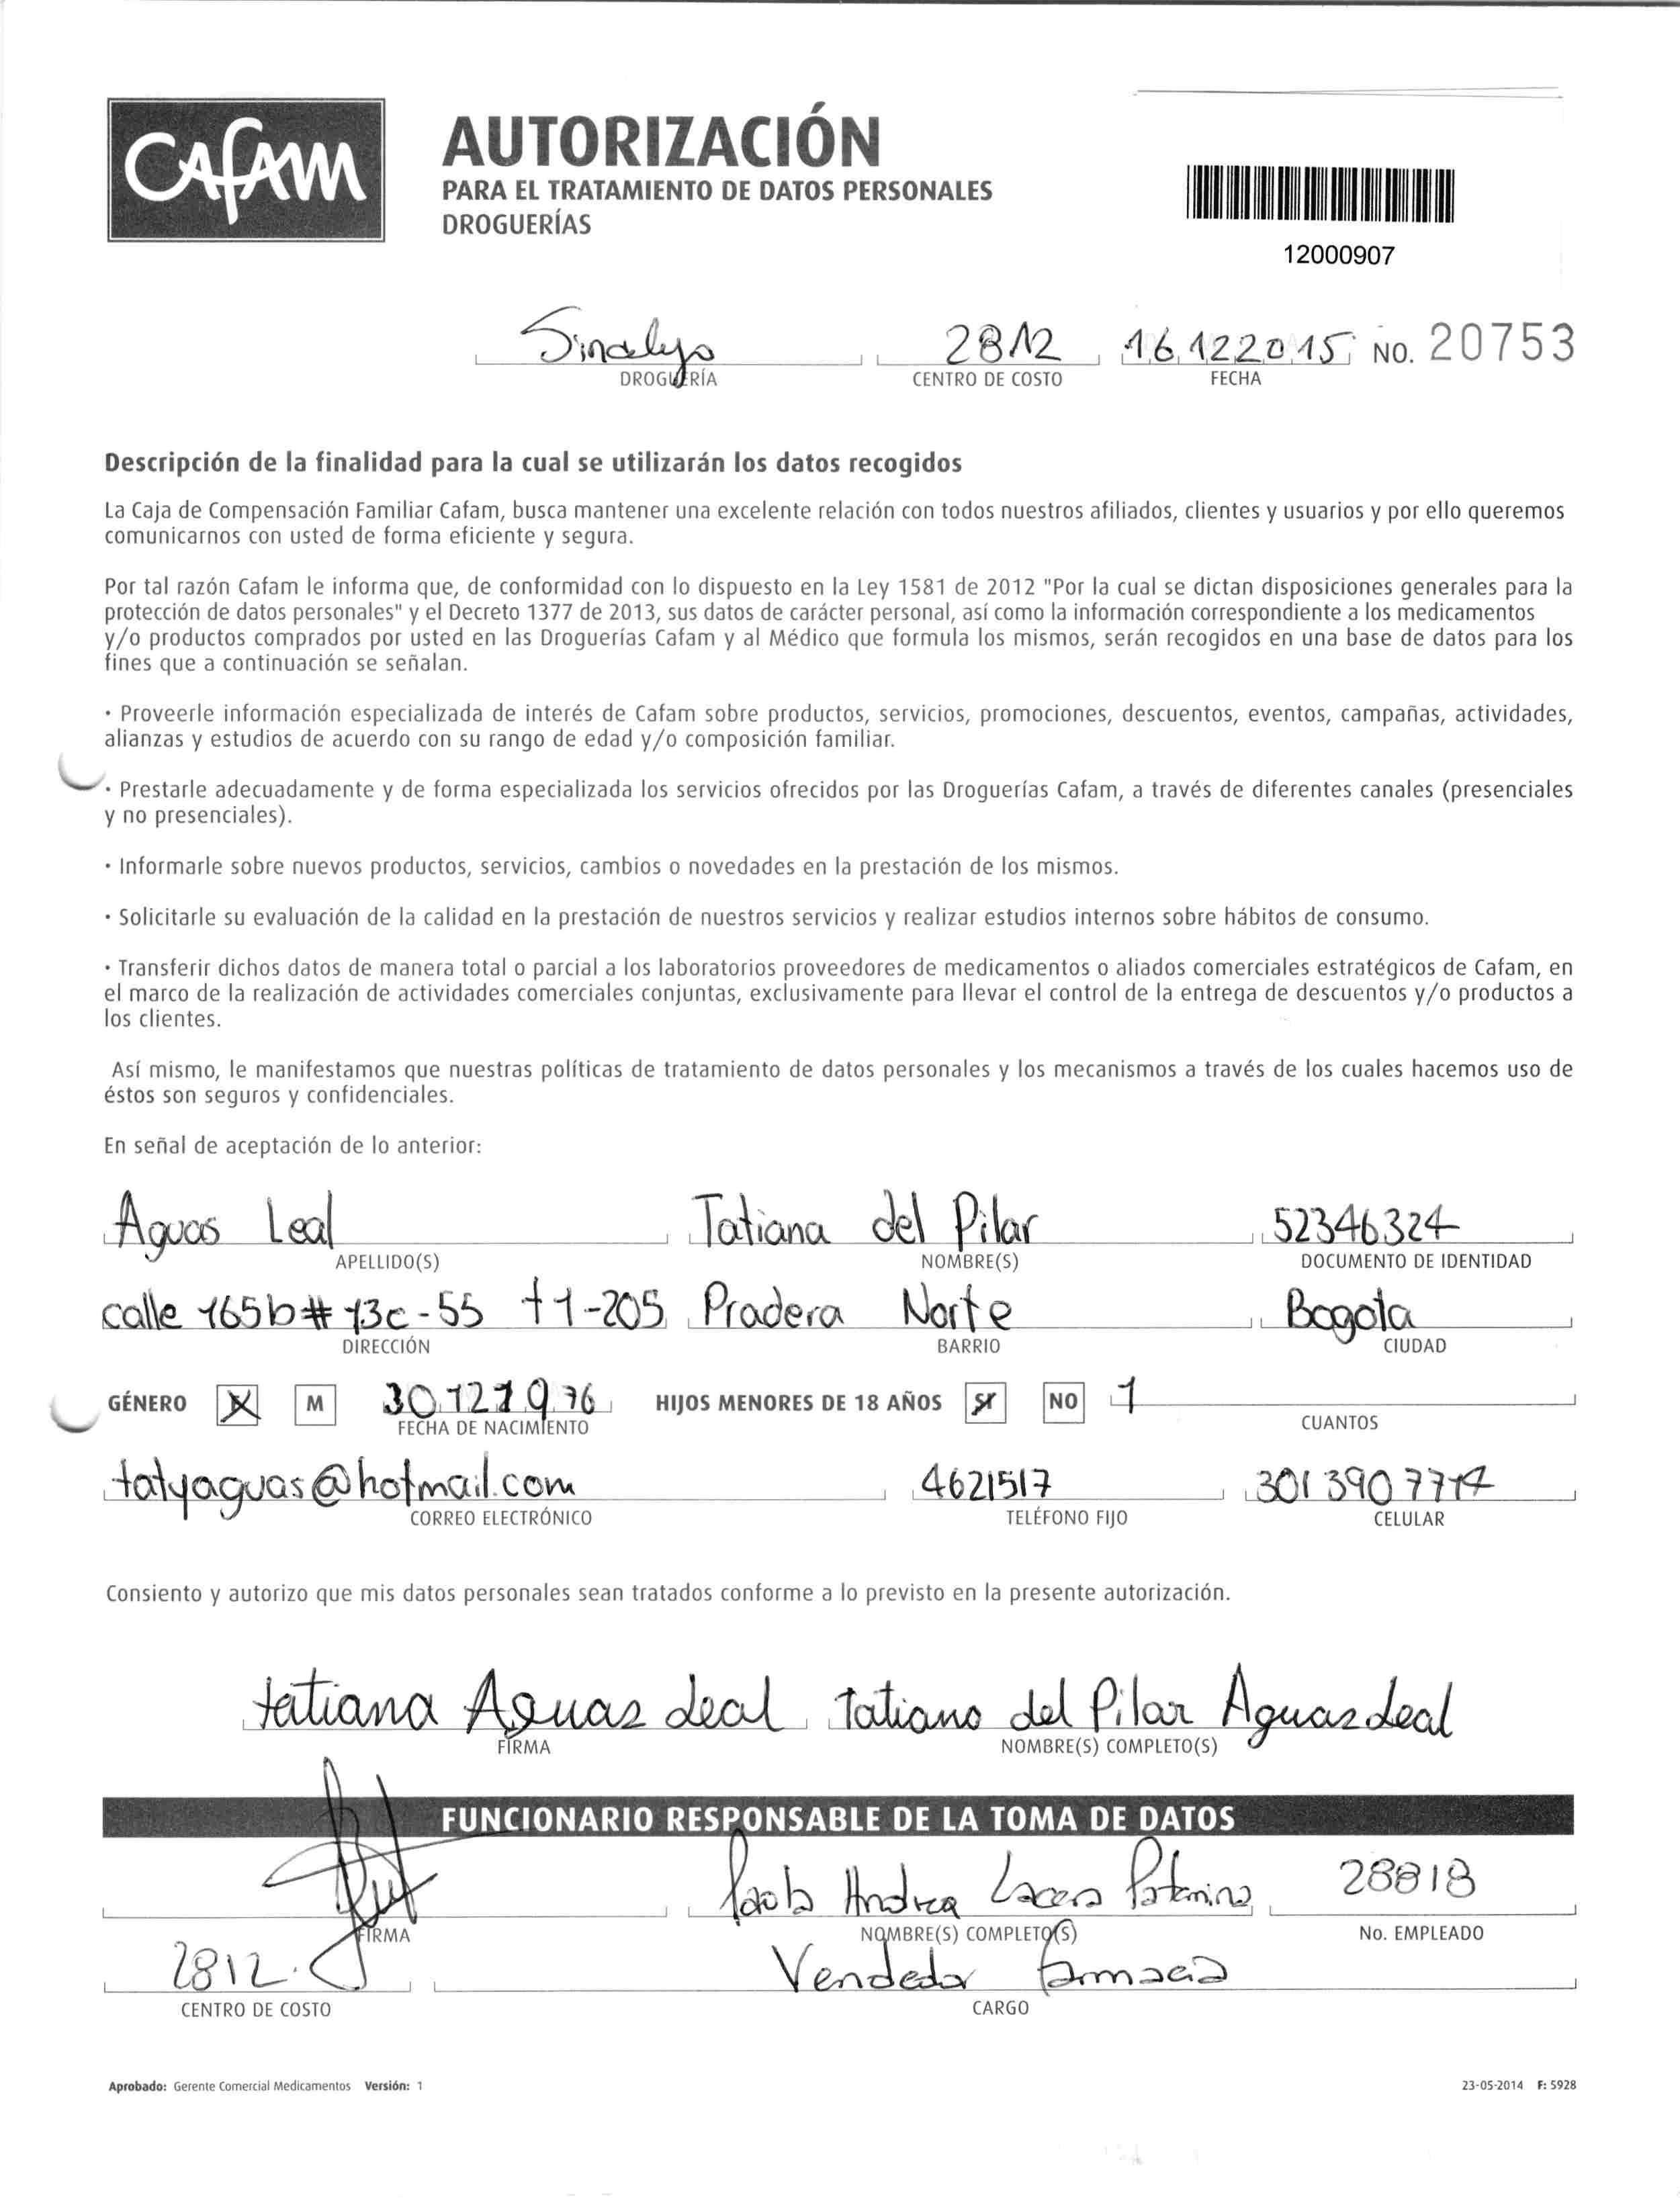 CAFAM
AUTORIZACIÓN
PARA EL TRATAMIENTO DE DATOS PERSONALES
DROGUERÍAS
12000907
2812 16 12 2015 NO. 20753
DROGUERÍA CENTRO DE COSTO FECHA
Descripción de la finalidad para la cual se utilizarán los datos recogidos
La Caja de Compensación Familiar Cafam, busca mantener una excelente relación con todos nuestros afiliados, clientes y usuarios y por ello queremos
comunicarnos con usted de forma eficiente y segura.
Por tal razón Cafam le informa que, de conformidad con lo dispuesto en la Ley 1581 de 2012 "Por la cual se dictan disposiciones generales para la
protección de datos personales" y el Decreto 1377 de 2013, sus datos de carácter personal, así como la información correspondiente a los medicamentos
y/o productos comprados por usted en las Droguerías Cafam y al Médico que formula los mismos, serán recogidos en una base de datos para los
fines que a continuación se señalan.
• Proveerle información especializada de interés de Cafam sobre productos, servicios, promociones, descuentos, eventos, campañas, actividades,
alianzas y estudios de acuerdo con su rango de edad y/o composición familiar.
• Prestarle adecuadamente y de forma especializada los servicios ofrecidos por las Droguerías Cafam, a través de diferentes canales (presenciales
y no presenciales).
• Informarle sobre nuevos productos, servicios, cambios o novedades en la prestación de los mismos.
• Solicitarle su evaluación de la calidad en la prestación de nuestros servicios y realizar estudios internos sobre hábitos de consumo.
• Transferir dichos datos de manera total o parcial a los laboratorios proveedores de medicamentos o aliados comerciales estratégicos de Cafam, en
el marco de la realización de actividades comerciales conjuntas, exclusivamente para llevar el control de la entrega de descuentos y/o productos a
los clientes.
Así mismo, le manifestamos que nuestras políticas de tratamiento de datos personales y los mecanismos a través de los cuales hacemos uso de
éstos son seguros y confidenciales.
En señal de aceptación de lo anterior:
Aguas Leal Tatiana del Pilar 52346324
APELLIDO(S) NOMBRE(S) DOCUMENTO DE IDENTIDAD
calle 165b# 13c-55 t1-205 Pradera Norte Bogota
DIRECCIÓN BARRIO CIUDAD
GÉNERO X M 30 12 1976 HIJOS MENORES DE 18 AÑOS SI NO 1
FECHA DE NACIMIENTO CUANTOS
tatyaguas@hotmail.com 4621517 301 390 7714
CORREO ELECTRÓNICO TELÉFONO FIJO CELULAR
Consiento y autorizo que mis datos personales sean tratados conforme a lo previsto en la presente autorización.
tatiana Aguas Leal Tatiana del Pilar Aguas Leal
FIRMA NOMBRE(S) COMPLETO(S)
FUNCIONARIO RESPONSABLE DE LA TOMA DE DATOS
Paola Andrea 28818
FIRMA NOMBRE(S) COMPLETO(S) No. EMPLEADO
2812. Vendedor farmacia
CENTRO DE COSTO CARGO
Aprobado: Gerente Comercial Medicamentos Versión: 1 23-05-2014 F: 5928